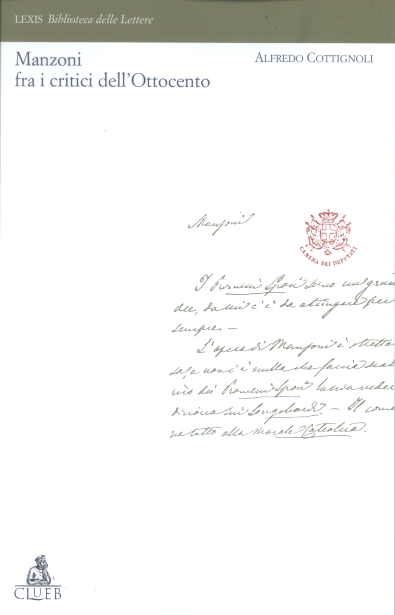 LEXIS Biblioteca delle Lettere
Manzoni
fra i critici dell'Ottocento
ALFREDO COTTIGNOLI
Manzoni
CAMERA DEI DEPUTATI
I Promessi Sposi sono un gran
da cui c'è da attingere per
sempre. —
L'opera di Manzoni è stretta
e non c'è nulla che faccia
dei Promessi Sposi
sui Longobardi. — Il
alla morale Cattolica.
CLUEB